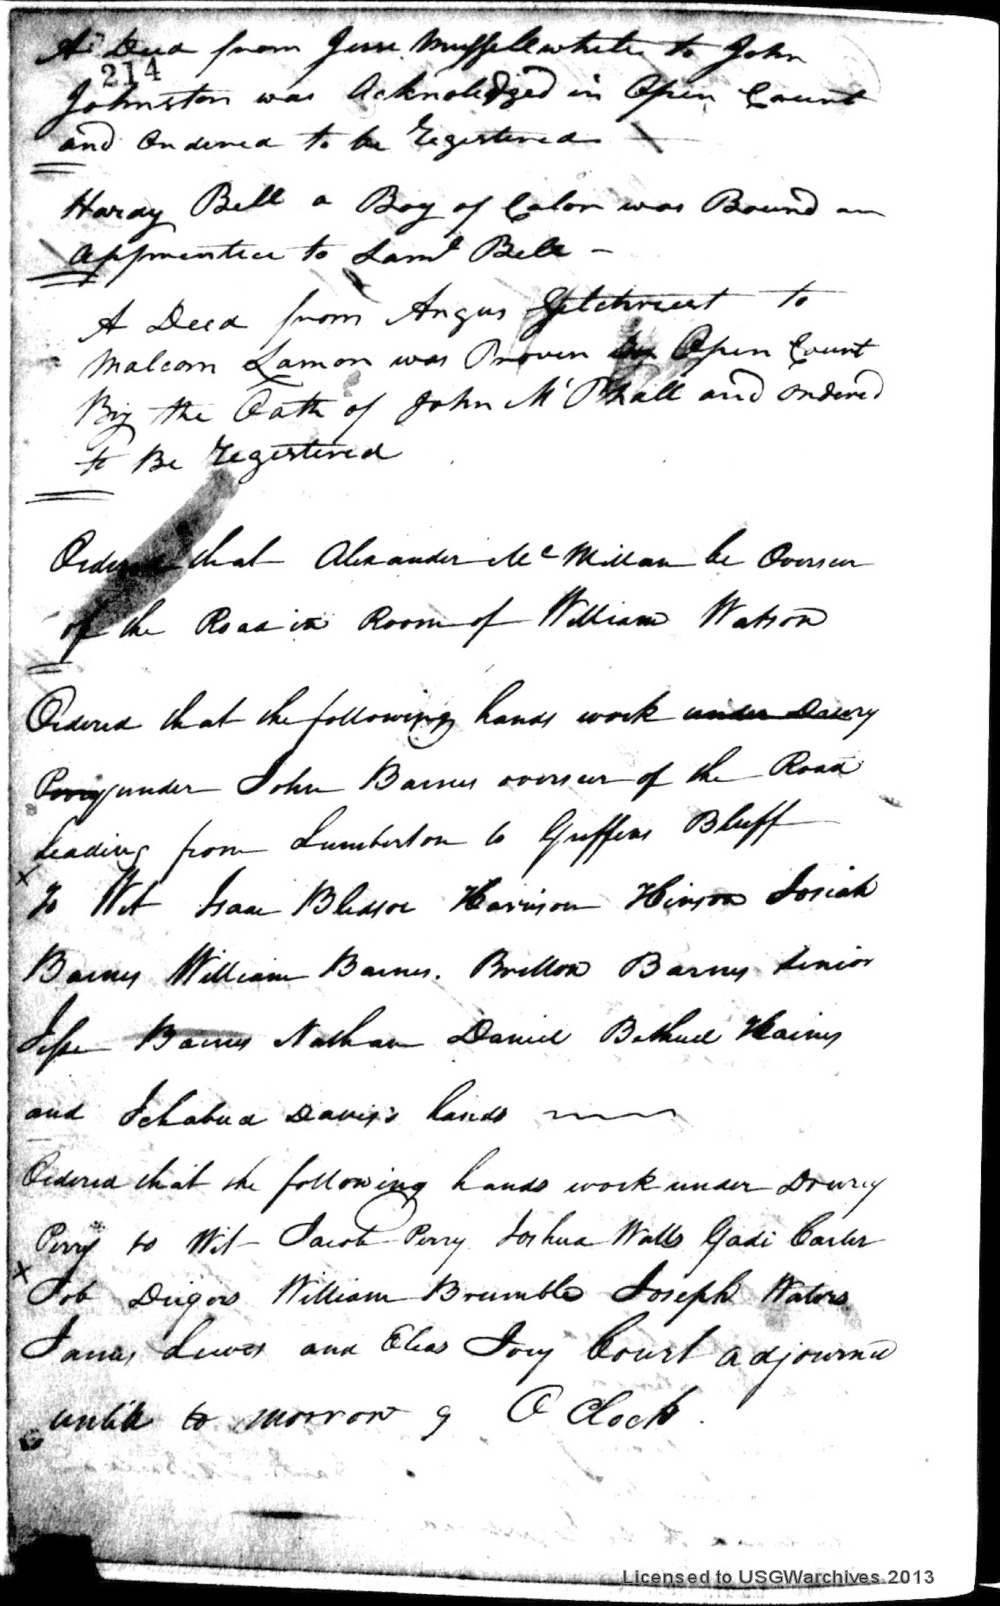 A Deed from Jesse Mussellwhite to John
214
Johnston was Acknoledged in Open Court
and Ordered to be Registered
Hardy Bell a Boy of Color was Bound an
Apprentice to Saml Bell -
A Deed from Angus Gilchriest to
Malcom Lamon was Proven in Open Court
By the Oath of John Mc Phall and ordered
to Be Registered
Ordered that Alexander Mc Millan be Overseer
of the Road in Room of William Watson
Ordered that the following hands work under Dowry
Perry under John Barnes overseer of the Road
leading from Lumberton to Griffins Bluff
x
To Wit Isaac Bledsoe Harrison Hinson Josiah
Barnes William Barnes. Britton Barnes Senior
Jesse Barnes Nathan Daniel Bethuel Hains
and Ichabud Davis's hands
Ordered that the following hands work under Dowry
Perry to Wit Jacob Perry Joshua Walls Gadi Carter
x
Job William Brumble Joseph Waters
Jonas Lewis and Elias Ivey Court adjourned
untill to morrow 9 O Clock.
Licensed to USGWarchives 2013